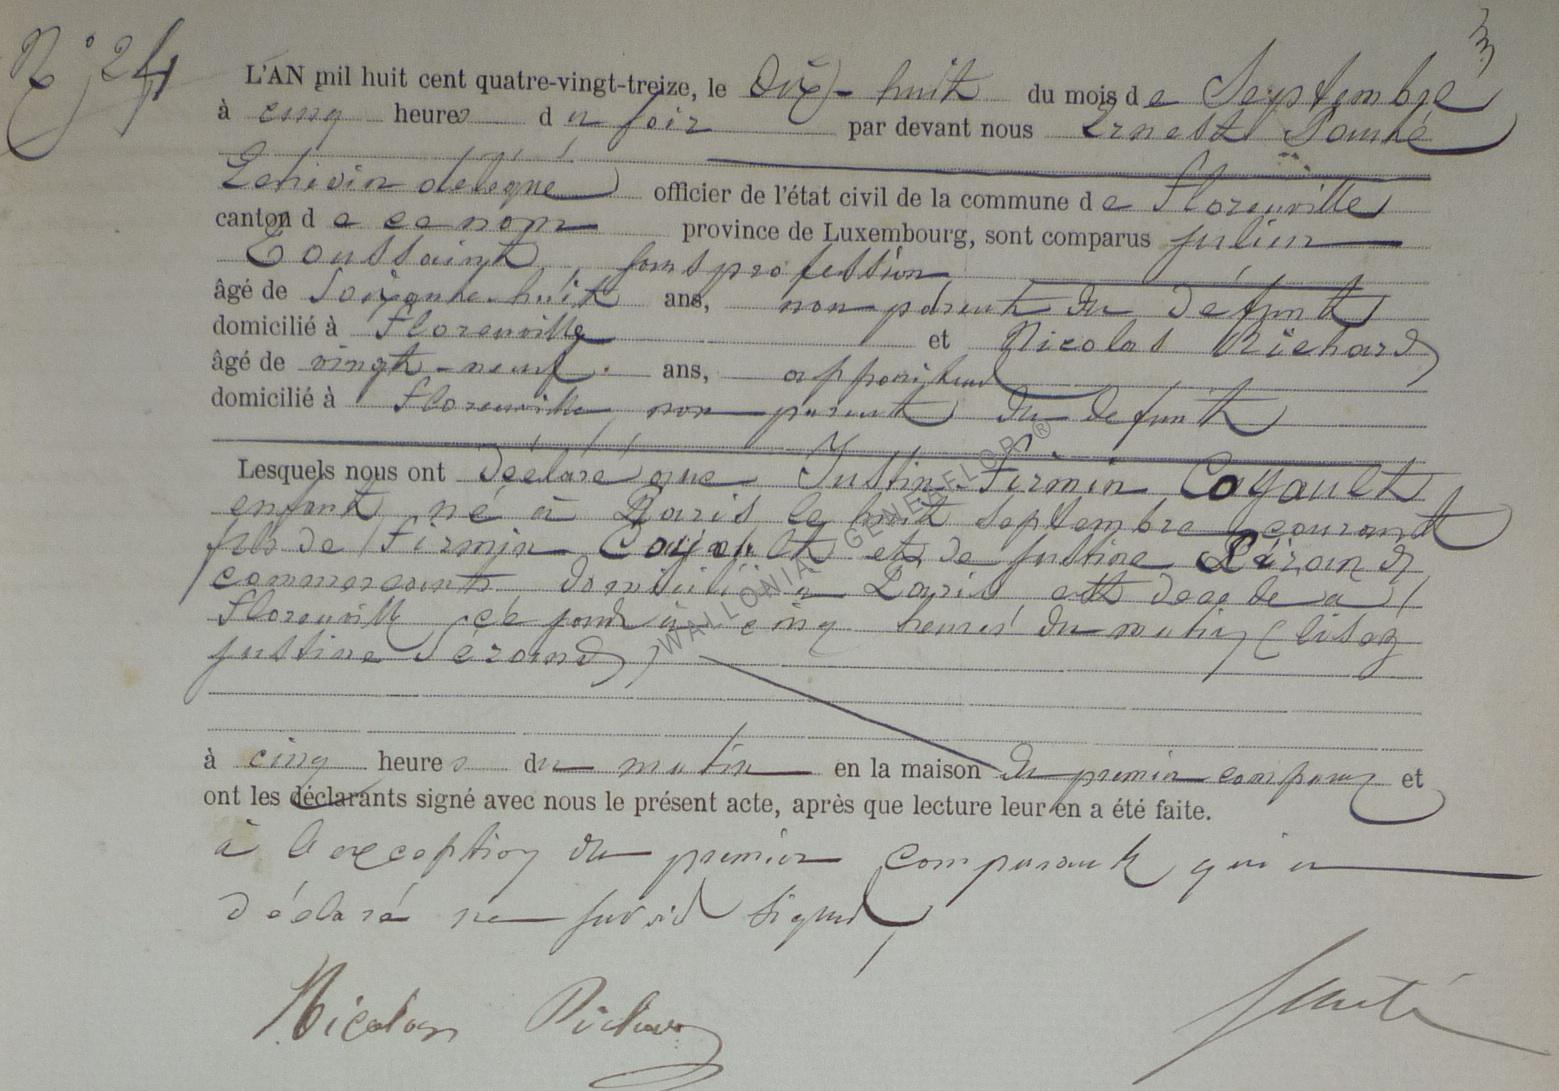 N° 24
L'AN mil huit cent quatre-vingt-treize, le Dix-huit du mois de Septembre
à cinq heures du soir par devant nous Ernest
Echevin délégué officier de l'état civil de la commune de Florenville
canton de ce nom province de Luxembourg, sont comparus Julien
Toussaint sans profession
âgé de Soixante-huit ans, non parent du défunt
domicilié à Florenville et Nicolas Richard
âgé de vingt-neuf ans, appariteur
domicilié à Florenville non parent du defunt
Lesquels nous ont déclaré que Justin Firmin Cogault
enfant né à Paris le huit septembre courant
fils de Firmin Cogault et de Justine Pérard
commercants domicilié a Paris est decede a
Florenville ce jourd'hui à cinq heures du matin (lisez
Justine Pérard)
WALLONIA GENEFLOR ®
à cinq heures du matin en la maison du premier comparant et
ont les déclarants signé avec nous le présent acte, après que lecture leur en a été faite.
à l'exception du premier comparant qui a
déclaré ne savoir signer
Nicolas Richard